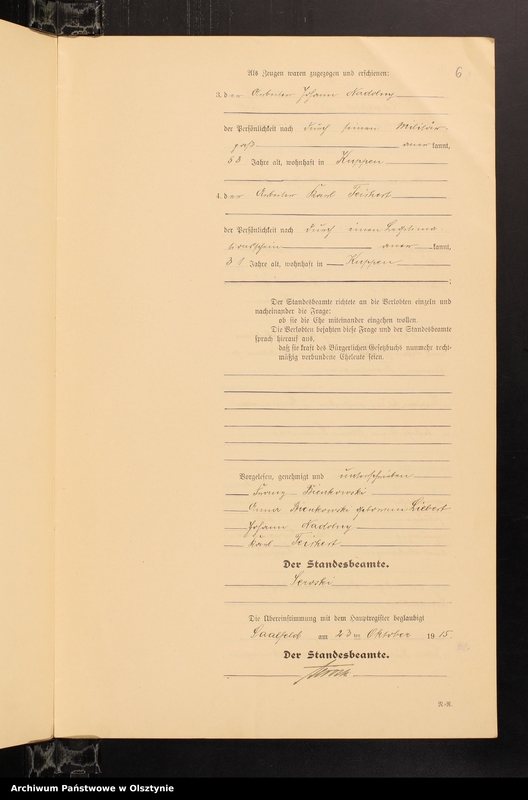 Als Zeugen waren zugezogen und erschienen:
6
3. der Arbeiter Johann Nadolny
der Persönlichkeit nach durch seinen Militär-
paß anerkannt,
58 Jahre alt, wohnhaft in Kuppen
4. der Arbeiter Karl Teichert
der Persönlichkeit nach durch einen Legitima
tionsschein anerkannt,
31 Jahre alt, wohnhaft in Kuppen
;
Der Standesbeamte richtete an die Verlobten einzeln und
nacheinander die Frage:
ob sie die Ehe miteinander eingehen wollen.
Die Verlobten bejahten diese Frage und der Standesbeamte
sprach hierauf aus,
daß sie kraft des Bürgerlichen Gesetzbuchs nunmehr recht-
mäßig verbundene Eheleute seien.
Vorgelesen, genehmigt und unterschrieben
Franz Bienkowski
Anna Bienkowski geborene Liebert
Johann Nadolny
Karl Teichert
Der Standesbeamte.
Die Übereinstimmung mit dem Hauptregister beglaubigt
Saalfeld am 2 ten Oktober 1915.
Der Standesbeamte.
N.-R.
Archiwum Państwowe w Olsztynie